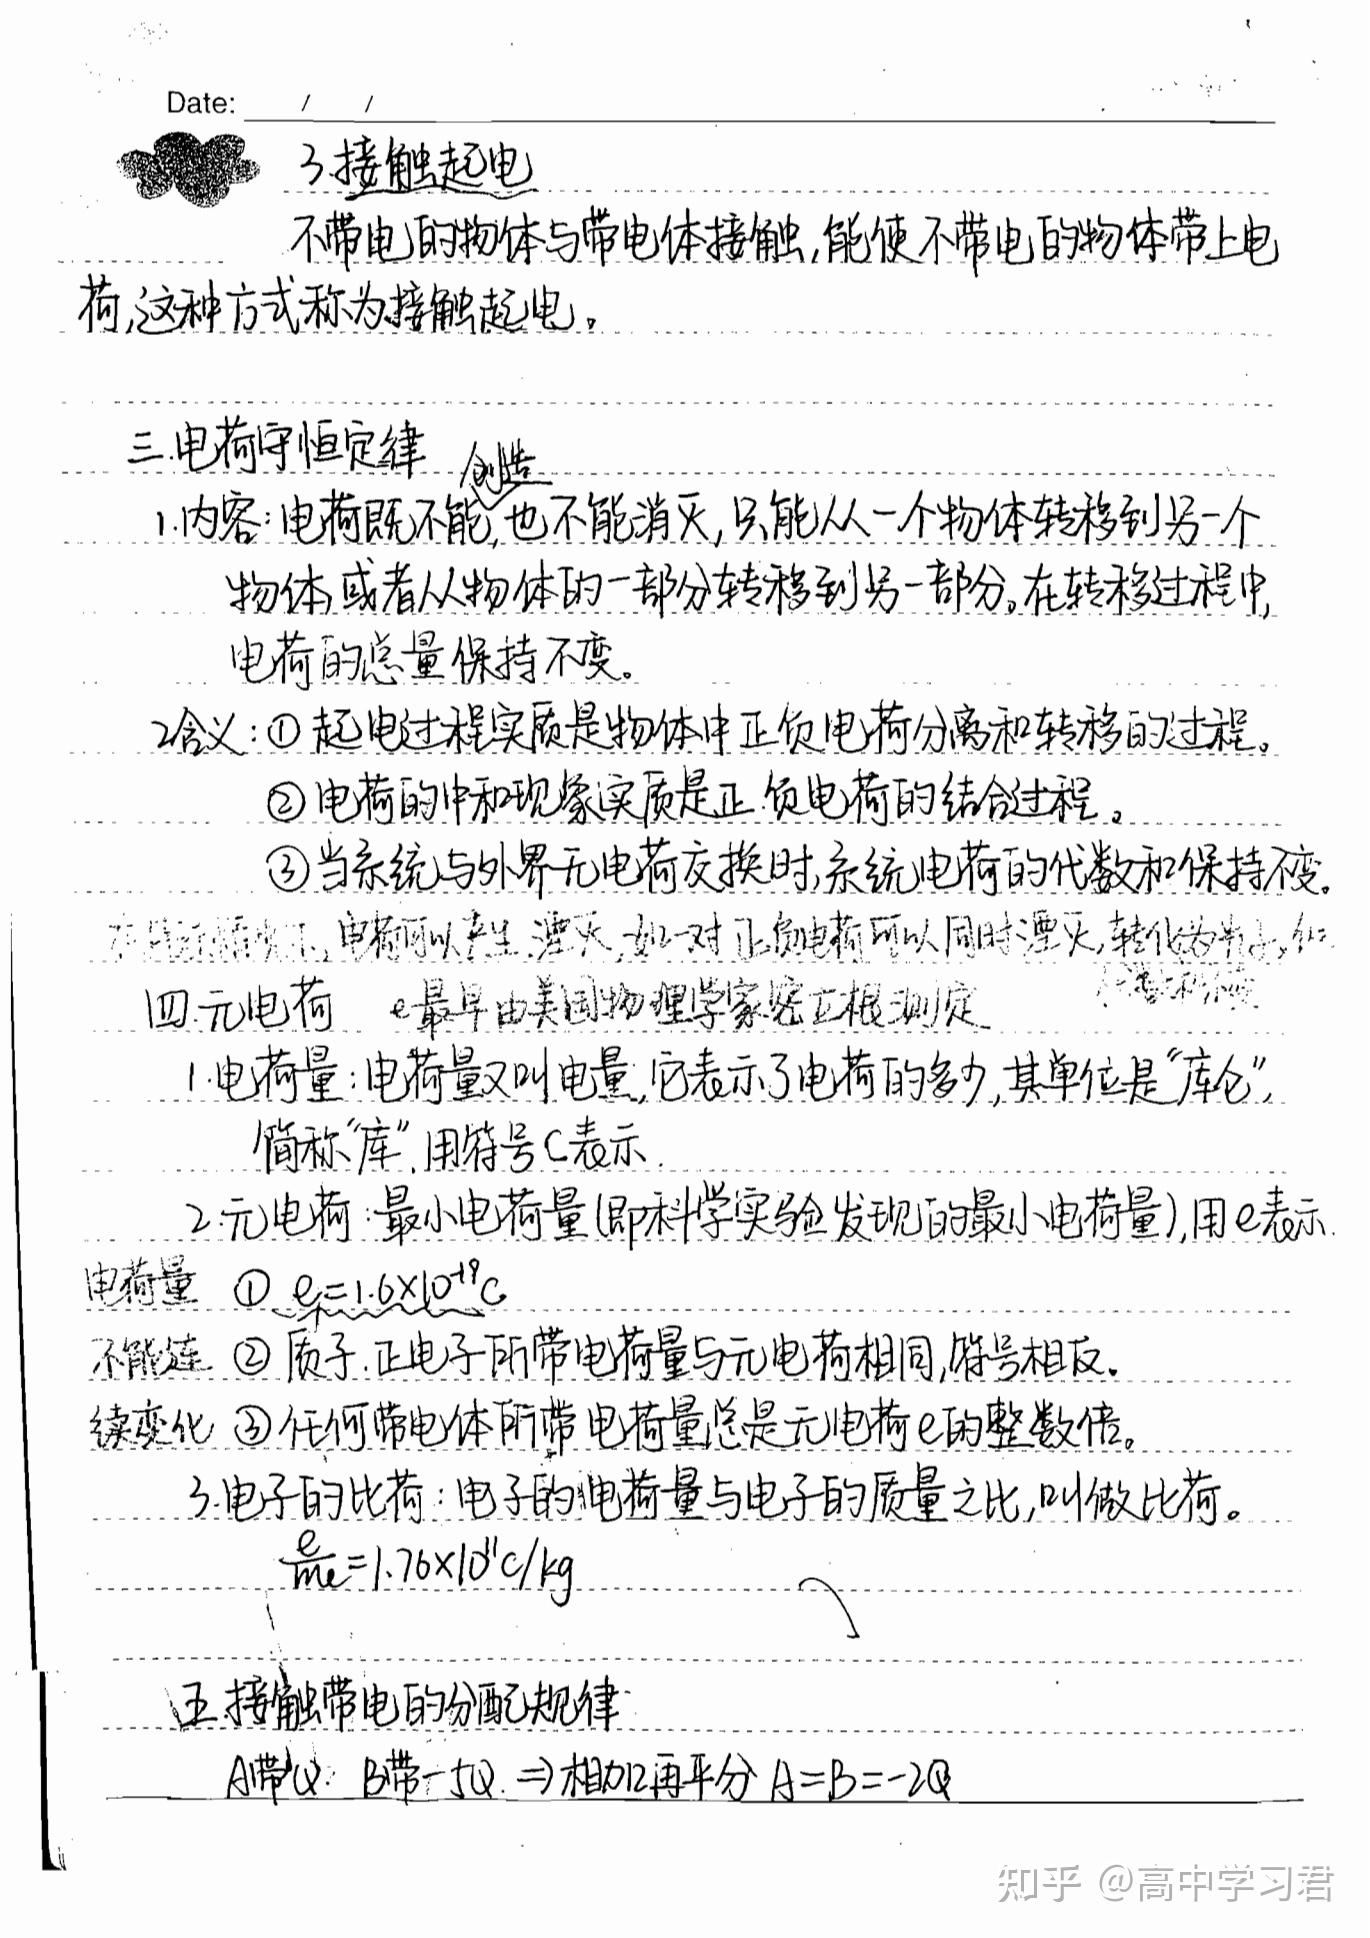 Date: / /
3.接触起电
不带电的物体与带电体接触,能使不带电的物体带上电
荷,这种方式称为接触起电。
三.电荷守恒定律
创造
1.内容:电荷既不能,也不能消灭,只能从一个物体转移到另一个
物体,或者从物体的一部分转移到另一部分。在转移过程中,
电荷的总量保持不变。
2含义:①起电过程实质是物体中正负电荷分离和转移的过程。
②电荷的中和现象实质是正.负电荷的结合过程。
③当系统与外界无电荷交换时,系统电荷的代数和保持不变。
电荷可以产生.湮灭,如一对正负电荷可以同时湮灭,转化为光子,
四.元电荷 e最早由美国物理学家密立根测定
1.电荷量:电荷量又叫电量,它表示了电荷的多少,其单位是“库仑”,
简称“库”.用符号C表示.
2.元电荷:最小电荷量(即科学实验发现的最小电荷量),用e表示.
电荷量 ① e=1.6×10⁻¹⁹C
不能连 ② 质子.正电子所带电荷量与元电荷相同,符号相反.
续变化 ③任何带电体所带电荷量总是元电荷e的整数倍。
3.电子的比荷:电子的电荷量与电子的质量之比,叫做比荷。
e/me=1.76×10¹¹C/kg
五.接触带电的分配规律
A带Q. B带-5Q. ⇒相加再平分 A=B=-2Q
知乎 @高中学习君